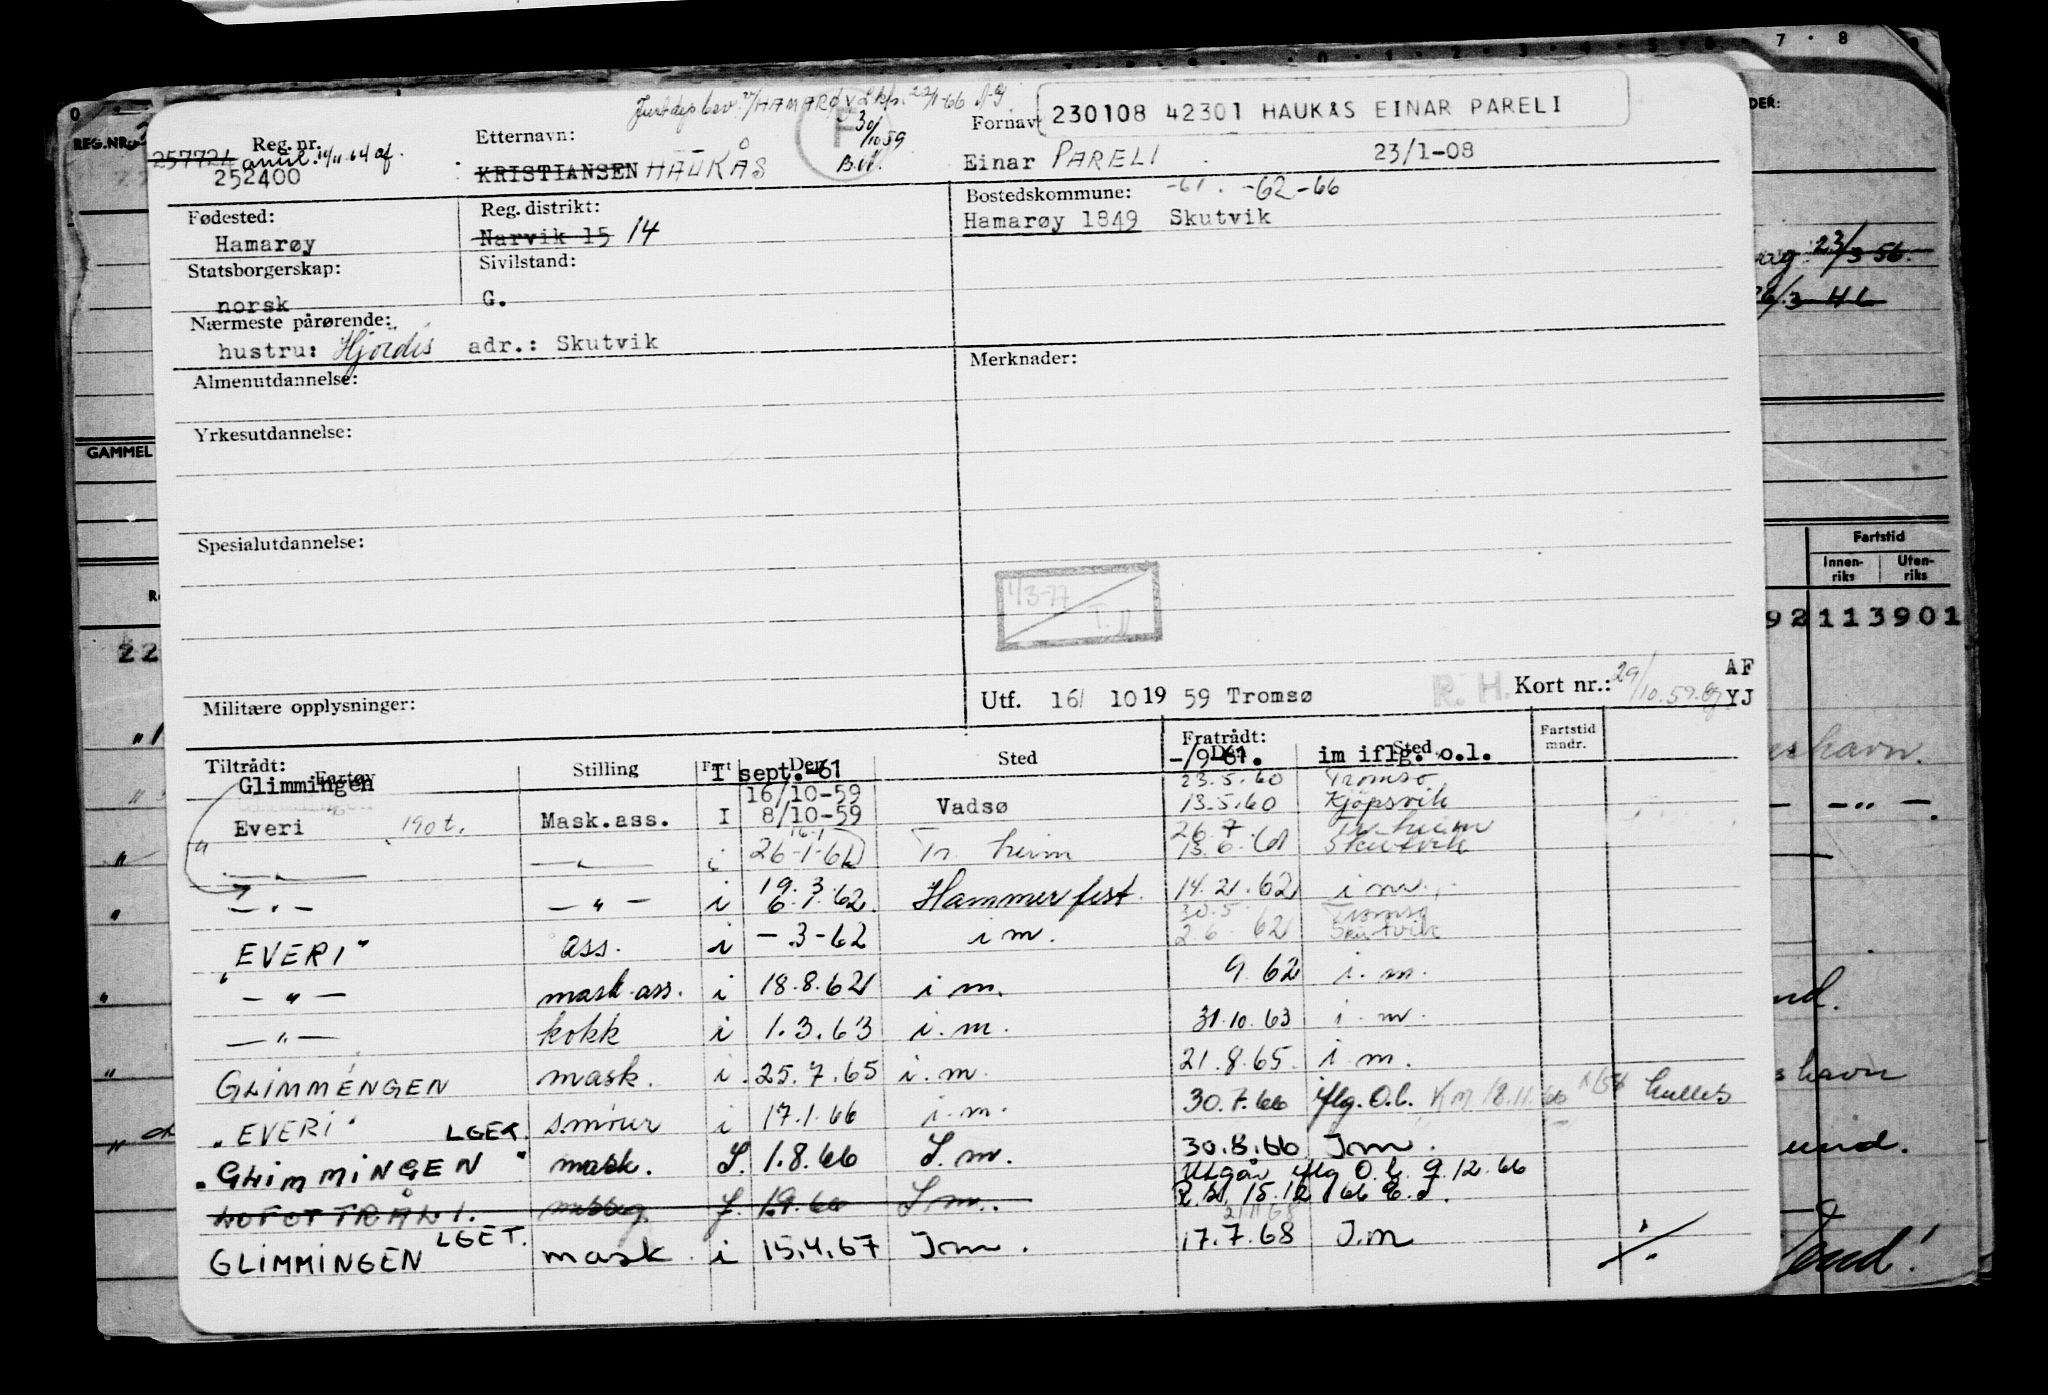 7 8
REG.NR.
DER:
230108 42301 HAUKÅS EINAR PARELI
Reg. nr. Etternavn: Fornavn
257724 annul. 14/11.64 af.
252400
KRISTIANSEN HAUKÅS
F 30/10 59 B.N.
Einar PARELI 23/1-08
Fødested: Reg. distrikt: Bostedskommune: -61. -62-66
Hamarøy Narvik 15 14 Hamarøy 1849 Skutvik
Statsborgerskap: Sivilstand:
norsk G.
Nærmeste pårørende:
hustru: Hjördis adr.: Skutvik
Almenutdannelse: Merknader:
Yrkesutdannelse:
Spesialutdannelse:
1/3-77
Militære opplysninger: Utf. 16/ 10 19 59 Tromsø R. H. Kort nr.: 29/10.59. AF YJ
GAMMEL
Fartstid
Innen-riks Uten-riks
92113901
22
23/3 56.
26/3 46
Tiltrådt: Fartøy Stilling Fart Den Sted Fratrådt: Den Sted Fartstid mndr.
Glimmingen I sept.-61 -/9-61. im iflg. o.l.
16/10-59 23.5.60 Tromsø
Everi 190 t. Mask.ass. I 8/10-59 Vadsø 13.5.60 Kjöpsvik
— " — — " — i 26-1-61 Tr.heim 26.7. Tr.heim
13.6.61 Skutvik
— " — — " — i 19.3.62 Hammerfest 14.21.62 i m.
6.1.62.
"EVERI" ass. i - .3-62 i m. 30.5. Tromsø
2.6.62 Skutvik
— " — mask.ass. i 18.8.62 i m. 9.62 i. m.
— " — kokk i 1.3.63 i. m. 31.10.63 i. m.
GLIMMENGEN mask. i. 25.7.65 i. m. 21.8.65. i m.
"EVERI" LGET. smörer i 17.1.66 i. m. 30.7.66 iflg. O.l. KM 18.11.66
"GLIMMINGEN" mask. I. 1.8.66 I. m. 30.8.66 I m.
LOFOTTRÅL 1. I. 1.9.66 I. m. Utgår iflg O.l. 9.12.66
15.12 66
GLIMMINGEN LGET. mask. i 15.4.67 I m. 17.7.68 I. m
havn.
nd.
havn
und.